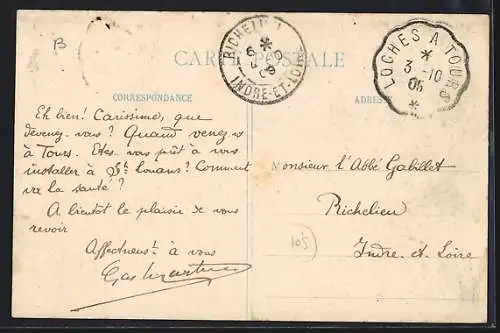 B
CARTE POSTALE
RICHELIEU
6
INDRE-ET-LOIRE
LOCHES A TOURS
3 -10
06
CORRESPONDANCE
Eh bien! Carissime, que
devenez-vous? Quand venez-vs
à Tours. Etes-vous prêt à vous
installer à St Louans? Comment
va la santé?
A bientôt le plaisir de vous
revoir
Affectueust à vous
Monsieur l'Abbé Gabillet
Richelieu
Indre-et-Loire
105